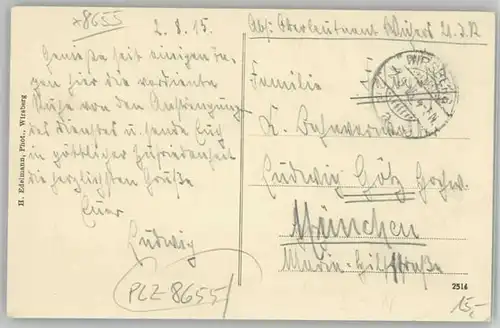 *8655
2.8.15.
Genieße seit einigen Ta-
gen hier die verdiente
Ruhe von den Anstrengungen
des Dienstes u. sende Euch
in göttlicher Zufriedenheit
die herzlichsten Grüße
Euer
Ludwig
PLZ-8655
H. Edelmann, Phot., Wirsberg
Abs: Oberleutnant
Familie
K.
Ludwig Götz
München
Maria-Hilfstraße
WIRSBERG
2516
15,-